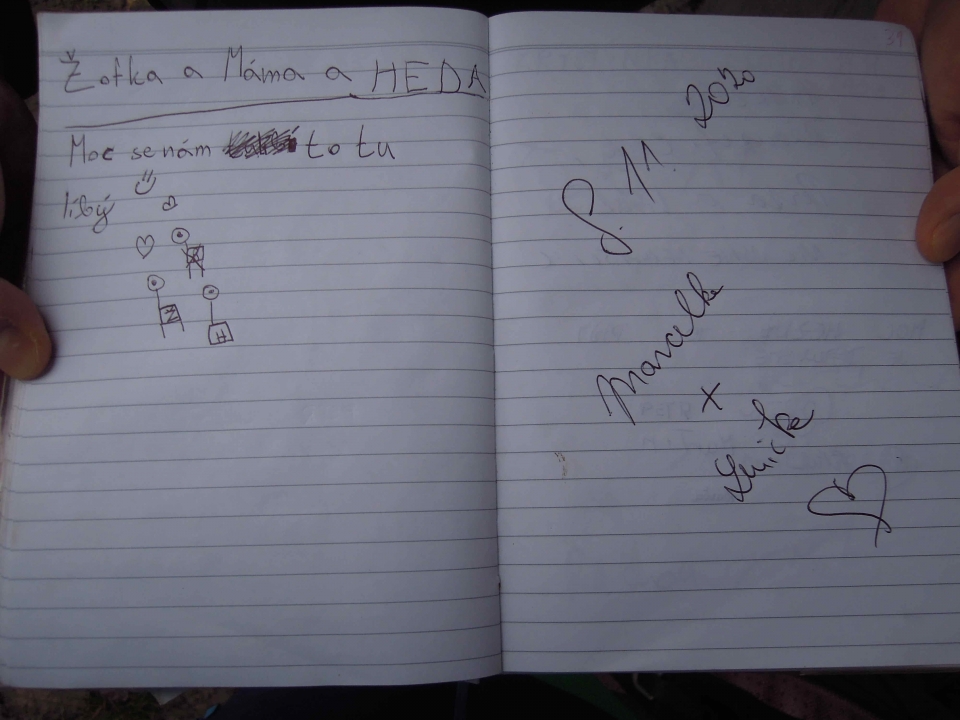 Žofka a Máma a HEDA
Moc se nám to tu
líbý
Z
H
31
8. 11. 2020
Marcelka
x